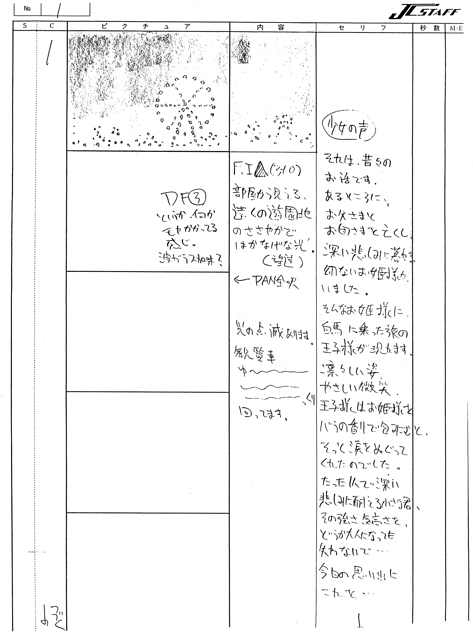 No. 1
J.C.STAFF
S
C
ピクチュア
内容
セリフ
秒数
M・E
1
F.I▲(3+0)
部屋から見える、
遠くの遊園地
のささやかで
はかなげな光。
(望遠)
← PAN
DF③
感じ。
光の点滅あります。
観覧車
ゆ〜
っくり
回ってます。
少女の声
それは、昔々の
お話です。
あるところに、
お父さまと
お母さまを亡くし、
深い悲しみに暮れる
幼いお姫様が
いました。
そんなお姫様に、
白馬に乗った旅の
王子様が現れます。
凛々しい姿、
やさしい微笑。
王子様はお姫様を
バラの香りで包みこむと、
そっと涙をぬぐって
くれたのでした。
たった一人で深い
悲しみに耐える小さな君、
その強さ気高さを、
どうか大人になっても
失わないで…
今日の思い出に
これを…